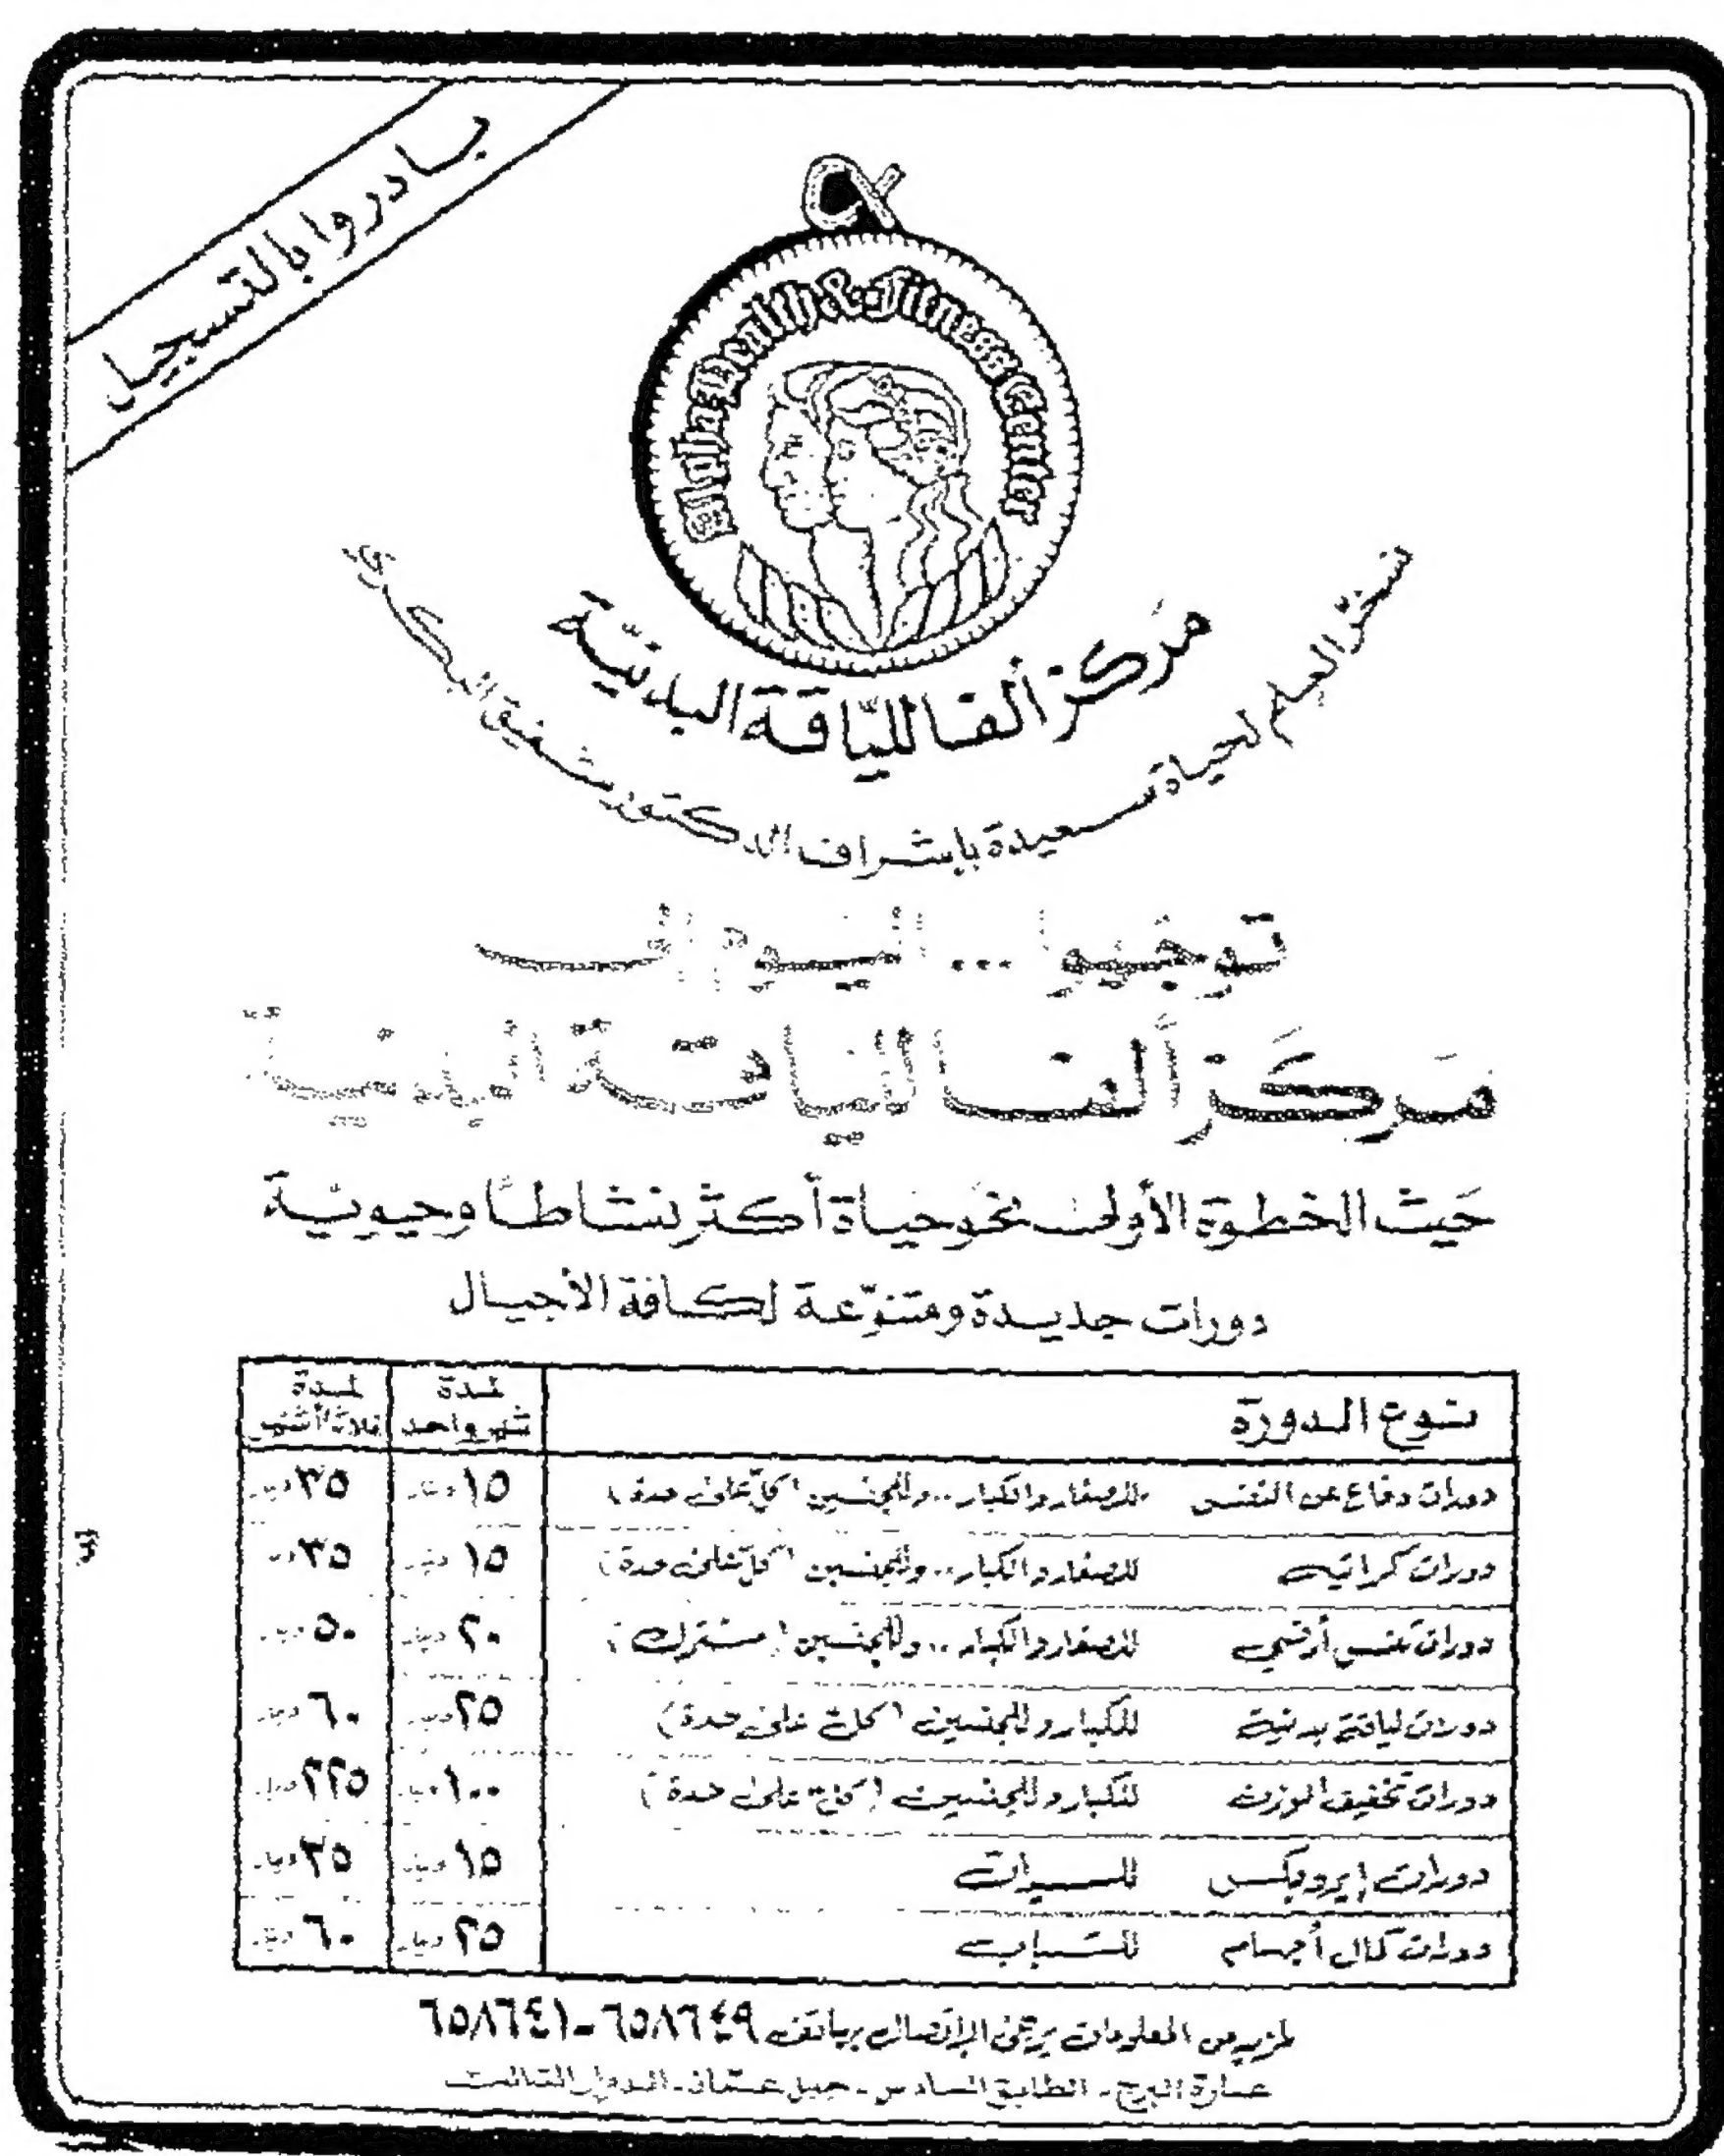 بادروا بالتسجيل
Alpha Health & Fitness Center
مركز ألفا للياقة البدنية
نسخر العلم لحياة سعيدة بإشراف الدكتور شفيق البكري
توجهوا ... اليوم إلى
مركز ألفا للياقة البدنية
حيث الخطوة الأولى نحو حياة أكثر نشاطاً وحيوية
دورات جديدة ومتنوّعة لكافة الأجيال
نوع الدورة لمدة شهر واحد لمدة ثلاثة أشهر
دورات دفاع عن النفس للصغار والكبار .. وللجنسين (كل على حدة) ١٥ دينار ٣٥ دينار
دورات كراتيه للصغار والكبار .. وللجنسين (كل على حدة) ١٥ دينار ٣٥ دينار
دورات تنس أرضي للصغار والكبار .. وللجنسين (مشترك) ٢٠ دينار ٥٠ دينار
دورات لياقة بدنية للكبار وللجنسين (كل على حدة) ٢٥ دينار ٦٠ دينار
دورات تخفيف الوزن للكبار وللجنسين (كل على حدة) ١٠٠ دينار ٢٢٥ دينار
دورات إيروبكس للسيدات ١٥ دينار ٣٥ دينار
دورات كمال أجسام للشباب ٢٥ دينار ٦٠ دينار
لمزيد من المعلومات يرجى الإتصال بهاتف ٦٥٨٦٤٩ - ٦٥٨٦٤١
عمارة البرج - الطابق السادس - جبل عمّان - الدوار الثالث